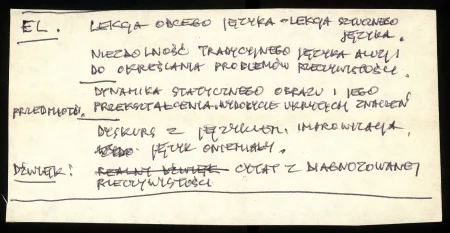 EL. LEKCJA OBCEGO JĘZYKA - LEKCJA SZTUCZNEGO
JĘZYKA.
NIEZDOLNOŚĆ TRADYCYJNEGO JĘZYKA ALUZJI
DO OKREŚLANIA PROBLEMÓW RZECZYWISTOŚCI.
DYNAMIKA STATYCZNEGO OBRAZU I JEGO
PRZEDMIOTÓW. PRZEKSZTAŁCENIA. WYDOBYCIE UKRYTYCH ZNACZEŃ
DYSKURS Z JĘZYKIEM, IMPROWIZACJA,
JĘZYK ONIEMIAŁY.
DŹWIĘK: REALNY DŹWIĘK CYTAT Z DIAGNOZOWANEJ
RZECZYWISTOŚCI